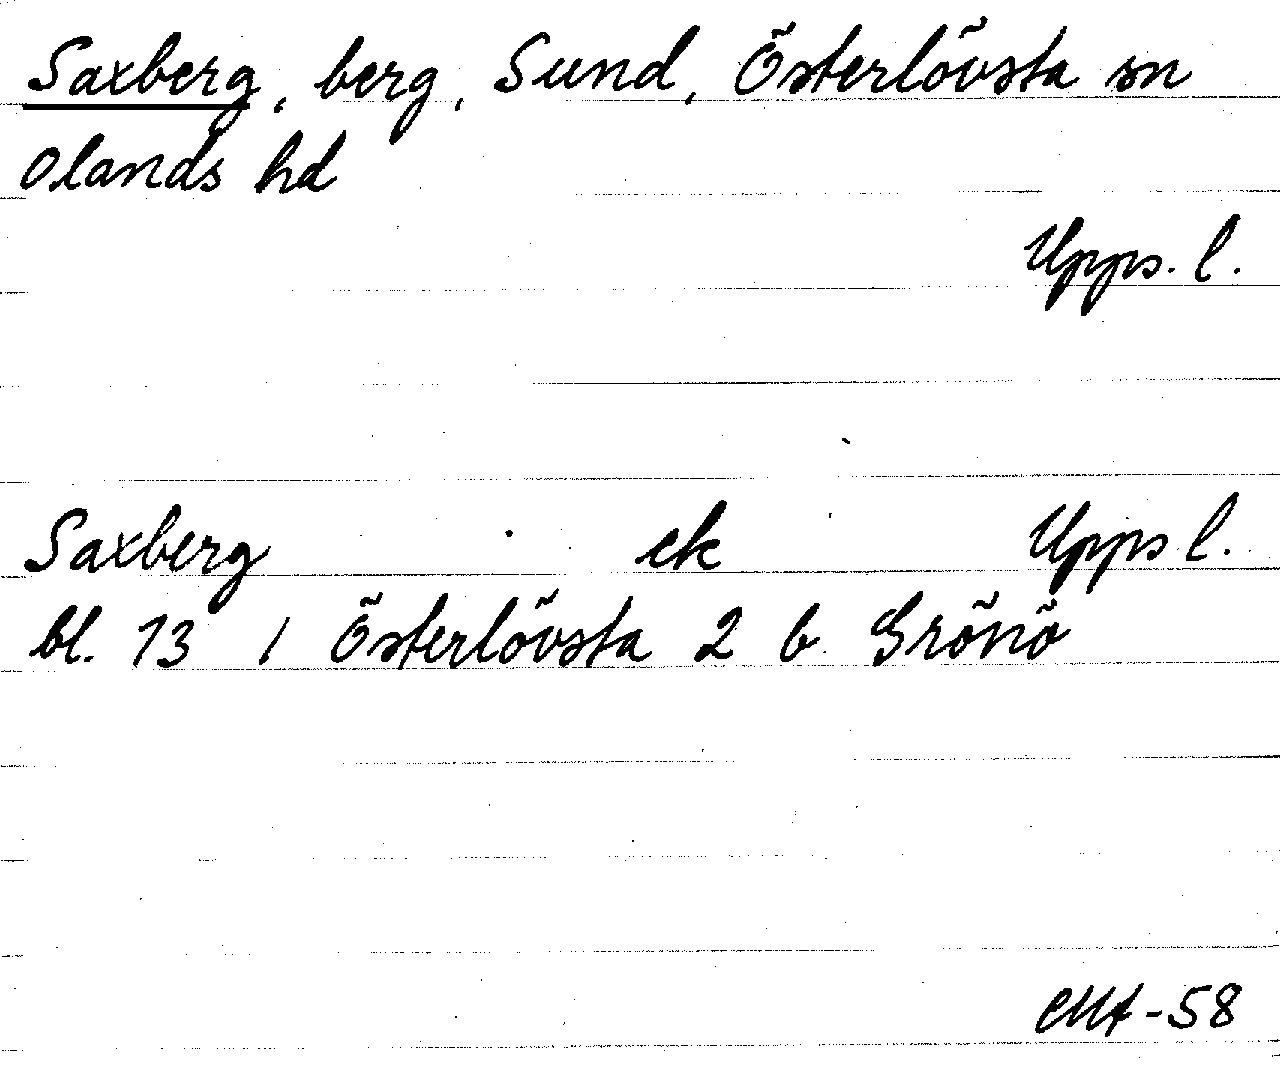 Saxberg, berg, Sund, Österlövsta sn
Olands hd
Upps. l.
Saxberg ek Upps l.
bl. 13 1 Österlövsta 2 b Grönö
CMA-58